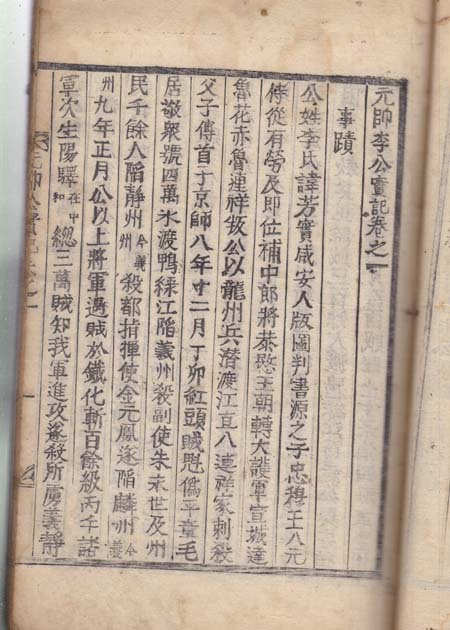 元帥李公實記卷之一
事蹟
公姓李氏諱芳實咸安人版圖判書源之子忠穆王入元
侍從有勞及卽位補中郎將恭愍王朝轉大護軍宣城達
魯花赤魯連祥叛公以龍州兵潛渡江直入連祥家刺殺
父子傳首于京師八年十二月丁卯紅頭賊魁僞平章毛
居敬衆號四萬氷渡鴨綠江陷義州殺副使朱永世及州
民千餘人陷靜州今義州殺都指揮使金元鳳遂陷麟州今義
州九年正月公以上將軍遇賊於鐵化斬百餘級丙午諸
軍次生陽驛在中和總三萬賊知我軍進攻遂殺所虜義靜
元帥公實記卷之一